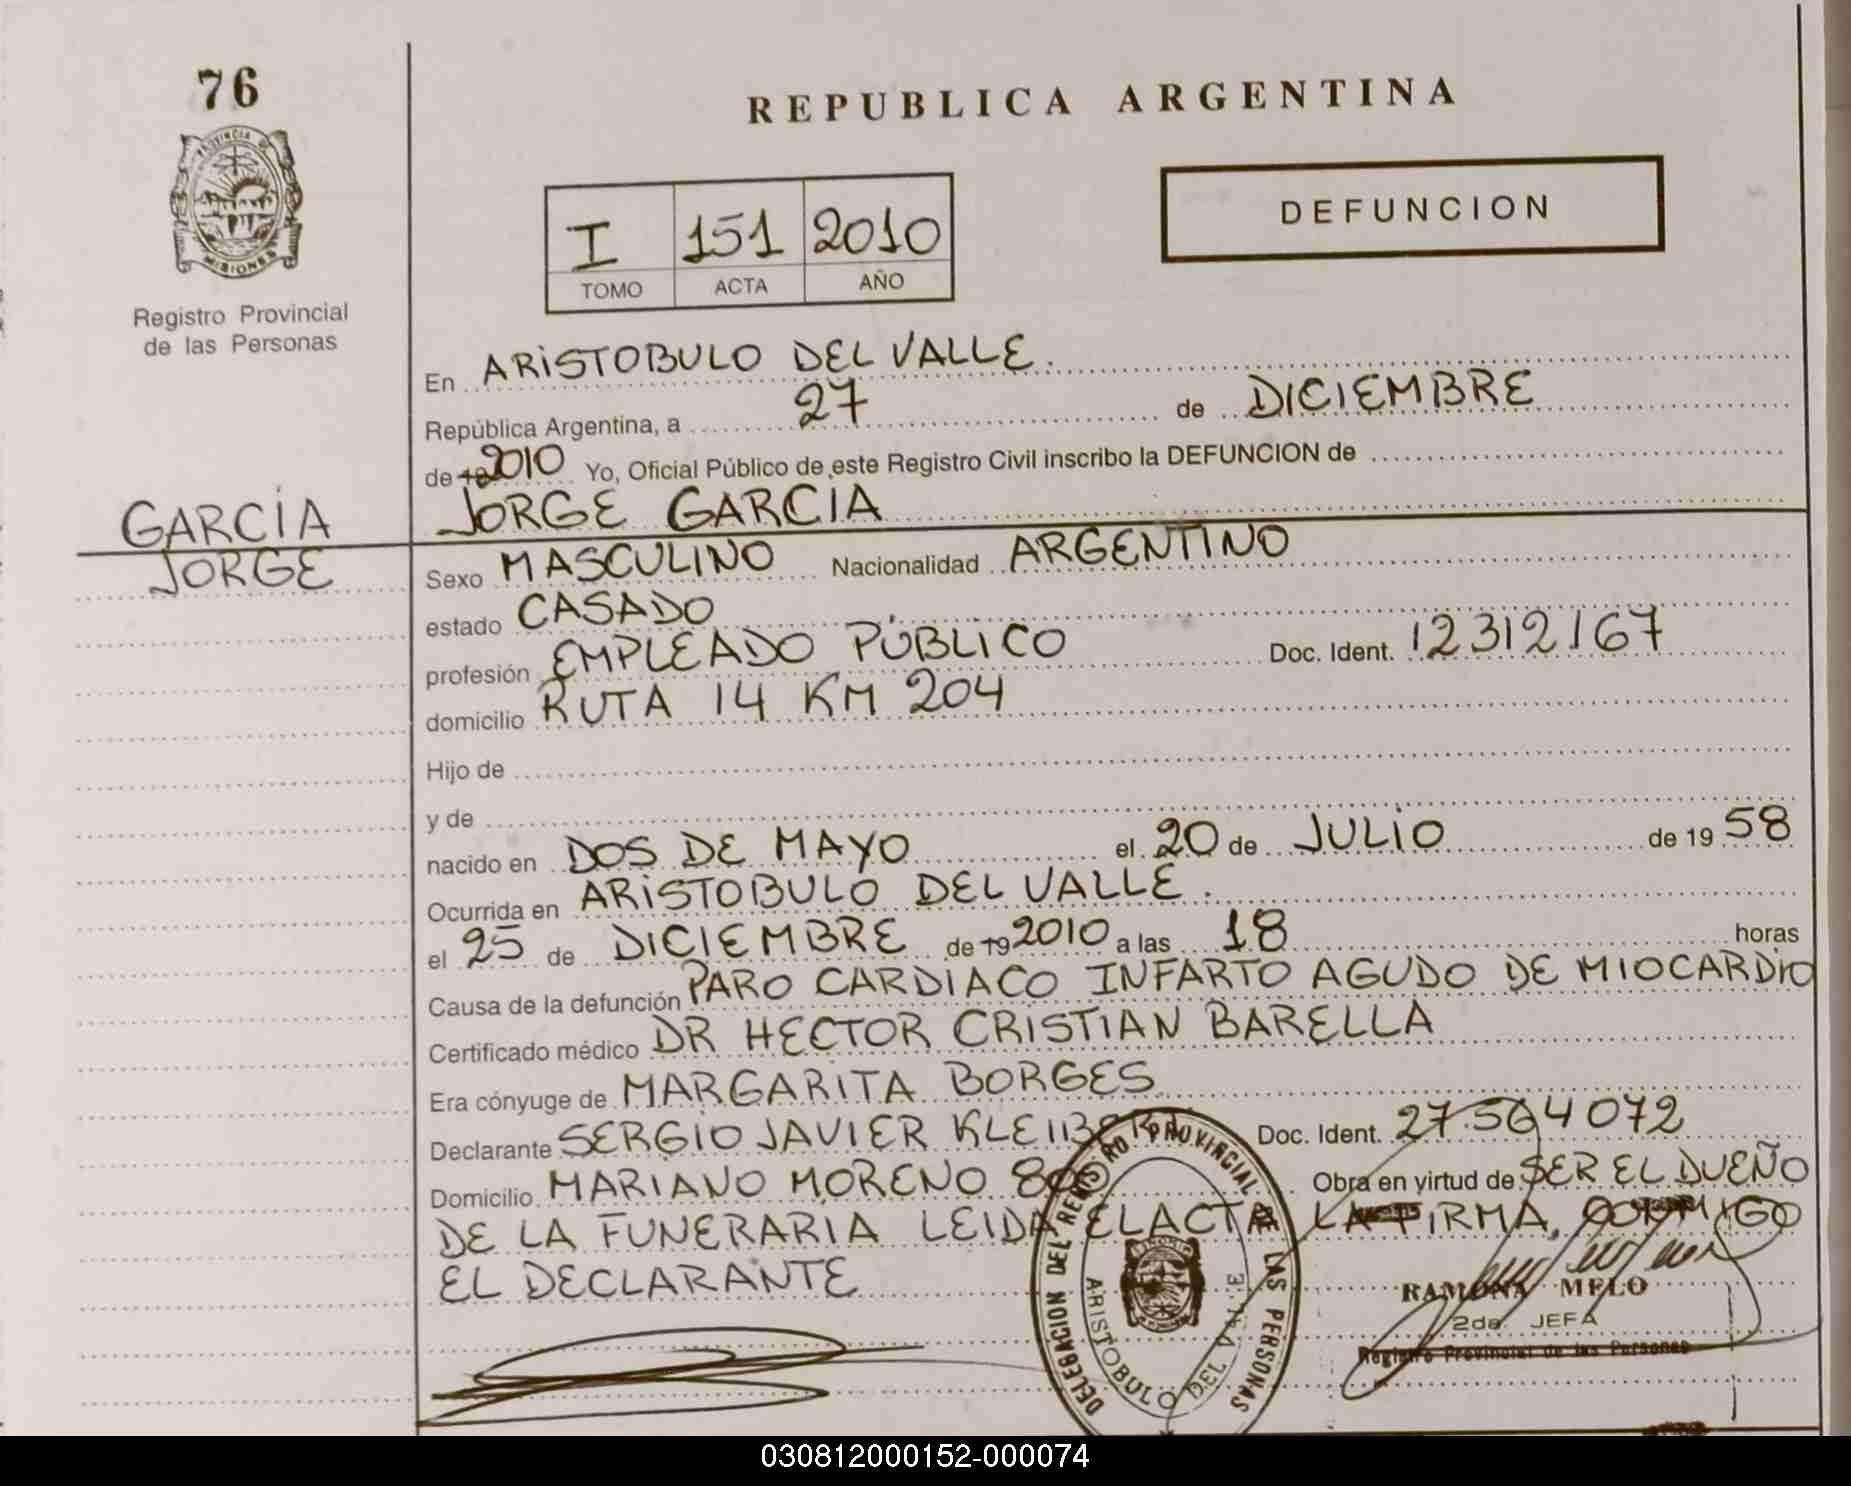 76
PROVINCIA DE
MISIONES
Registro Provincial
de las Personas
GARCÍA
JORGE
REPUBLICA ARGENTINA
I 151 2010
TOMO ACTA AÑO
DEFUNCION
En ARISTOBULO DEL VALLE.
República Argentina, a 27 de DICIEMBRE
de 19 2010 Yo, Oficial Público de este Registro Civil inscribo la DEFUNCION de
JORGE GARCIA
Sexo MASCULINO Nacionalidad ARGENTINO
estado CASADO
profesión EMPLEADO PÚBLICO Doc. Ident. 12312167
domicilio RUTA 14 KM 204
Hijo de
y de
nacido en DOS DE MAYO el 20 de JULIO de 19 58
Ocurrida en ARISTOBULO DEL VALLE.
el 25 de DICIEMBRE de 19 2010 a las 18 horas
Causa de la defunción PARO CARDIACO INFARTO AGUDO DE MIOCARDIO
Certificado médico DR HECTOR CRISTIAN BARELLA
Era cónyuge de MARGARITA BORGES
Declarante SERGIO JAVIER Doc. Ident. 27.564072
Domicilio MARIANO MORENO Obra en virtud de SER EL DUEÑO
DE LA FUNERARIA LEIDA EL ACTA LA FIRMA, CONMIGO
EL DECLARANTE
DELEGACION DEL REGISTRO PROVINCIAL DE LAS PERSONAS
ARISTOBULO DEL VALLE
RAMONA MELO
2da. JEFA
Registro Provincial de las Personas
030812000152-000074